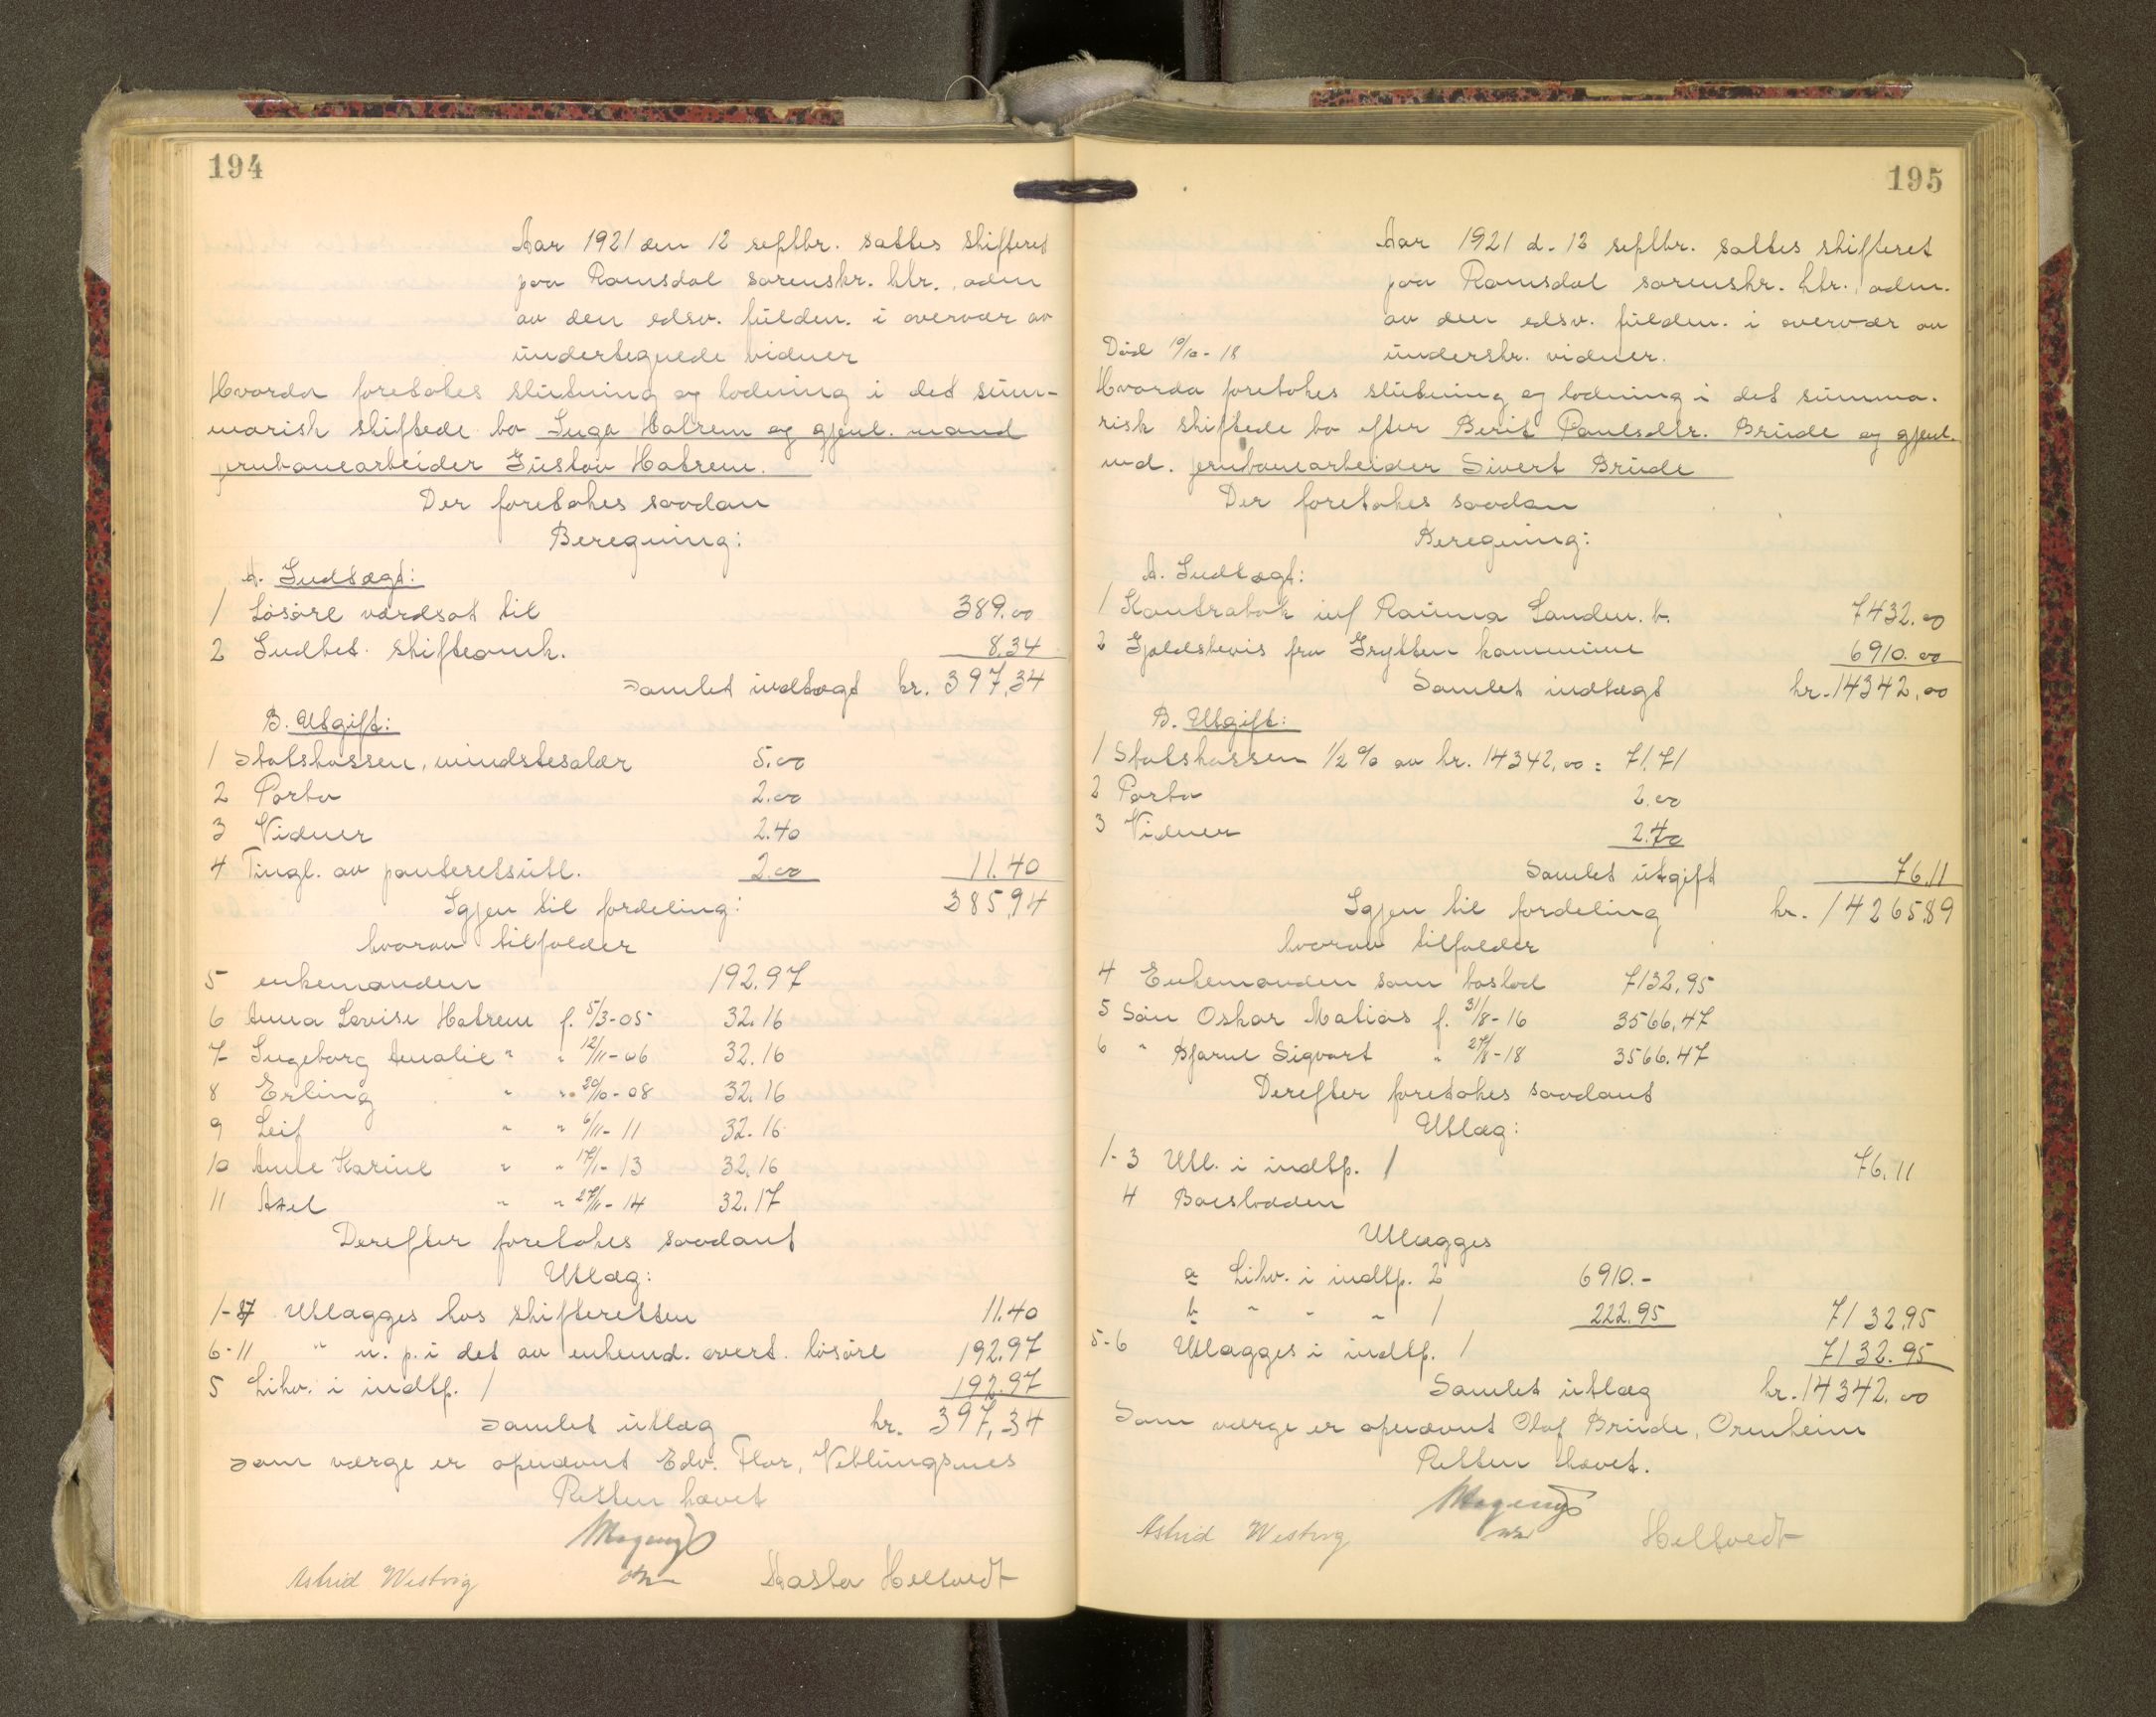 194
Aar 1921 den 12 septbr. sattes skifteret
paa Romsdal sorenskr. ktr. adm
av den edsv. fuldm. i overvær av
undertegnede vidner
Hvorda foretokes slutning og lodning i det sum-
marisk skiftede bo Inga Hatrem og gjenl. mand
jernbanearbeider Gustav Hatrem.
Der foretokes saadan
Beregning:
A. Indtægt:
1 Løsøre værdsat til 389.00
2 Indbet. skifteomk. 8,34
Samlet indtægt kr. 397,34
B. Utgift:
1 Statskassen, mindstesalær 5.00
2 Porto 2.00
3 Vidner 2.40
4 Tingl. av panteretsutl. 2.00 11.40
Igjen til fordeling: 385,94
hvorav tilfalder
5 enkemanden 192.97
6 Anna Lovise Hatrem f. 5/3-05 32.16
7 Ingeborg Amalie " " 12/11-06 32.16
8 Erling " " 20/10-08 32.16
9 Leif " " 6/11-11 32.16
10 Anne Karine " " 17/1-13 32.16
11 Axel " " 27/11-14 32.17
Derefter foretokes saadant
Utlæg:
1-4 Utlægges hos skifteretten 11.40
6-11 " m. p. i det av enkemd. overt. løsøre 192.97
5 Likv. i indtp. 1 192.97
Samlet utlæg kr. 397,34
Som værge er opnævnt Edv. Flor, Veblungsnes
Retten hævet
Astrid Westvig Aasta Heltvedt
195
Aar 1921 d. 12 septbr. sattes skifteret
paa Romsdal sorenskr. ktr. adm.
av den edsv. fuldm. i overvær av
Død 10/10-18 underskr. vidner.
Hvorda foretokes slutning og lodning i det summa-
risk skiftede bo efter Berit Paulsdtr. Brude og gjenl.
md. jernbanearbeider Sivert Brude
Der foretokes saadan
Beregning:
A. Indtægt:
1 Kontrabok inf Rauma Landm. b. 7432.00
2 Gjældsbevis fra Grytten kommune 6910.00
Samlet indtægt kr. 14342,00
B. Utgift:
1 Statskassen 1/2 % av kr. 14342,00 = 71.71
2 Porto 2.00
3 Vidner 2.40
Samlet utgift 76.11
Igjen til fordeling kr. 14265,89
hvorav tilfalder
4 Enkemanden som boslod 7132,95
5 Søn Oskar Matias f. 31/8-16 3566,47
6 " Bjarne Sigvart " 27/8-18 3566.47
Derefter foretokes saadant
Utlæg:
1-3 Utl. i indtp. 1 76.11
4 Boeslodden
Utlægges
a Likv. i indtp. 2 6910.-
b " " " 1 222.95 7132,95
5-6 Utlægges i indtp. 1 7132.95
Samlet utlæg kr. 14342.00
Som værge er opnævnt Olaf Brude, Ormheim
Retten hævet.
Astrid Westvig Heltvedt